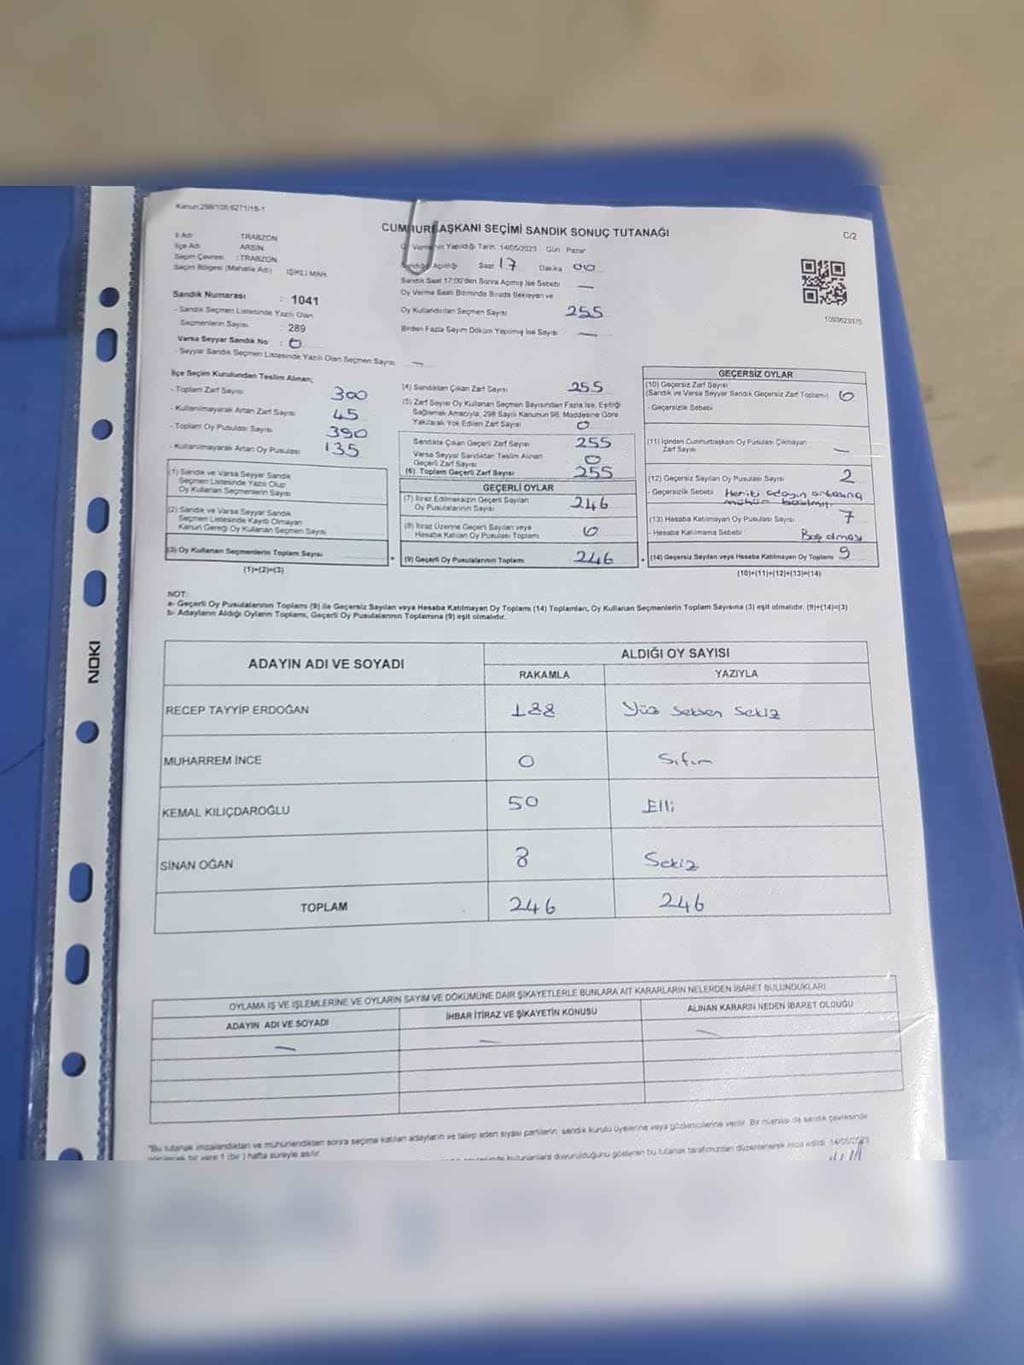 Kanun:298/105;6271/18-1
CUMHURBAŞKANI SEÇİMİ SANDIK SONUÇ TUTANAĞI
C/2
İl Adı : TRABZON
İlçe Adı : ARSİN
Seçim Çevresi : TRABZON
Seçim Bölgesi (Mahalle Adı) : IŞIKLI MAH.
Oy Vermenin Yapıldığı Tarih: 14/05/2023 Gün : Pazar
Sandığın Açıldığı Saat 17 Dakika 00
Sandık Saat 17:00'den Sonra Açılmış İse Sebebi —
Oy Verme Saati Bitiminde Sırada Bekleyen ve
Oy Kullandırılan Seçmen Sayısı 255
Birden Fazla Sayım Döküm Yapılmış İse Sayısı —
1093623375
Sandık Numarası : 1041
- Sandık Seçmen Listesinde Yazılı Olan
Seçmenlerin Sayısı : 289
Varsa Seyyar Sandık No : 0
- Seyyar Sandık Seçmen Listesinde Yazılı Olan Seçmen Sayısı —
İlçe Seçim Kurulundan Teslim Alınan;
- Toplam Zarf Sayısı 300
- Kullanılmayarak Artan Zarf Sayısı 45
- Toplam Oy Pusulası Sayısı 390
- Kullanılmayarak Artan Oy Pusulası 135
(1) Sandık ve Varsa Seyyar Sandık
Seçmen Listesinde Yazılı Olup
Oy Kullanan Seçmenlerin Sayısı
(2) Sandık ve Varsa Seyyar Sandık
Seçmen Listesinde Kayıtlı Olmayan
Kanun Gereği Oy Kullanan Seçmen Sayısı
(3) Oy Kullanan Seçmenlerin Toplam Sayısı
(1)+(2)=(3)
(4) Sandıktan Çıkan Zarf Sayısı 255
(5) Zarf Sayısı Oy Kullanan Seçmen Sayısından Fazla İse, Eşitliği
Sağlamak Amacıyla, 298 Sayılı Kanunun 98. Maddesine Göre
Yakılarak Yok Edilen Zarf Sayısı 0
Sandıkta Çıkan Geçerli Zarf Sayısı 255
Varsa Seyyar Sandıktan Teslim Alınan
Geçerli Zarf Sayısı 0
(6) Toplam Geçerli Zarf Sayısı 255
GEÇERLİ OYLAR
(7) İtiraz Edilmeksizin Geçerli Sayılan
Oy Pusulalarının Sayısı 246
(8) İtiraz Üzerine Geçerli Sayılan veya
Hesaba Katılan Oy Pusulası Toplamı 0
(9) Geçerli Oy Pusulalarının Toplamı 246
GEÇERSİZ OYLAR
(10) Geçersiz Zarf Sayısı
(Sandık ve Varsa Seyyar Sandık Geçersiz Zarf Toplamı) 0
- Geçersizlik Sebebi
(11) İçinden Cumhurbaşkanı Oy Pusulası Çıkmayan
Zarf Sayısı —
(12) Geçersiz Sayılan Oy Pusulası Sayısı 2
- Geçersizlik Sebebi Her iki adayın ortasına
mühür basılmış
(13) Hesaba Katılmayan Oy Pusulası Sayısı 7
- Hesaba Katılmama Sebebi Boş olması
(14) Geçersiz Sayılan veya Hesaba Katılmayan Oy Toplamı 9
(10)+(11)+(12)+(13)=(14)
NOT:
a- Geçerli Oy Pusulalarının Toplamı (9) ile Geçersiz Sayılan veya Hesaba Katılmayan Oy Toplamı (14) Toplamları, Oy Kullanan Seçmenlerin Toplam Sayısına (3) eşit olmalıdır. (9)+(14)=(3)
b- Adayların Aldığı Oyların Toplamı, Geçerli Oy Pusulalarının Toplamına (9) eşit olmalıdır.
ADAYIN ADI VE SOYADI
ALDIĞI OY SAYISI
RAKAMLA YAZIYLA
RECEP TAYYİP ERDOĞAN 188 Yüz Seksen Sekiz
MUHARREM İNCE 0 Sıfır
KEMAL KILIÇDAROĞLU 50 Elli
SİNAN OĞAN 8 Sekiz
TOPLAM 246 246
OYLAMA İŞ VE İŞLEMLERİNE VE OYLARIN SAYIM VE DÖKÜMÜNE DAİR ŞİKAYETLERLE BUNLARA AİT KARARLARIN NELERDEN İBARET BULUNDUKLARI
ADAYIN ADI VE SOYADI İHBAR İTİRAZ VE ŞİKAYETİN KONUSU ALINAN KARARIN NEDEN İBARET OLDUĞU
— — —
"Bu tutanak imzalandıktan ve mühürlendikten sonra seçime katılan adayların ve talep eden siyasi partilerin sandık kurulu üyelerine veya gözlemcilerine verilir. Bir nüshası da sandık çevresinde
görülecek bir yere 1 (bir) hafta süreyle asılır.
bulunanlara duyurulduğunu gösteren bu tutanak tarafımızdan düzenlenerek imza edildi. 14/05/2023
NOKI